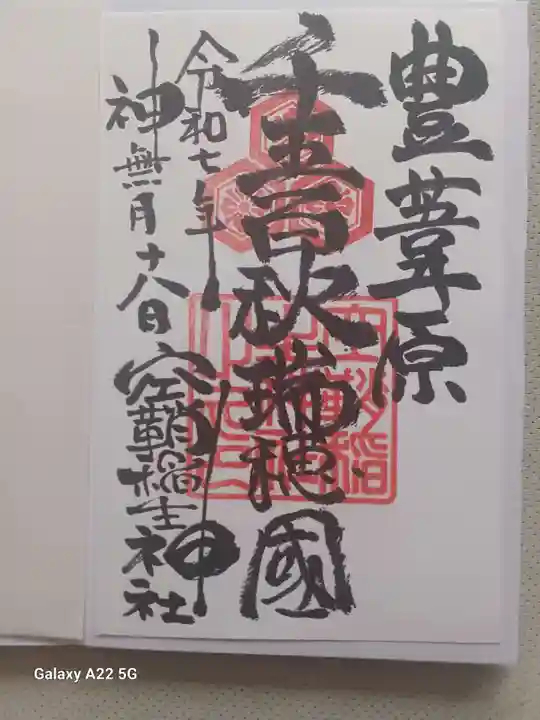 豊葦原
千五百秋瑞穂國
令和七年
神無月十八日 空鞘稲生神社
Galaxy A22 5G